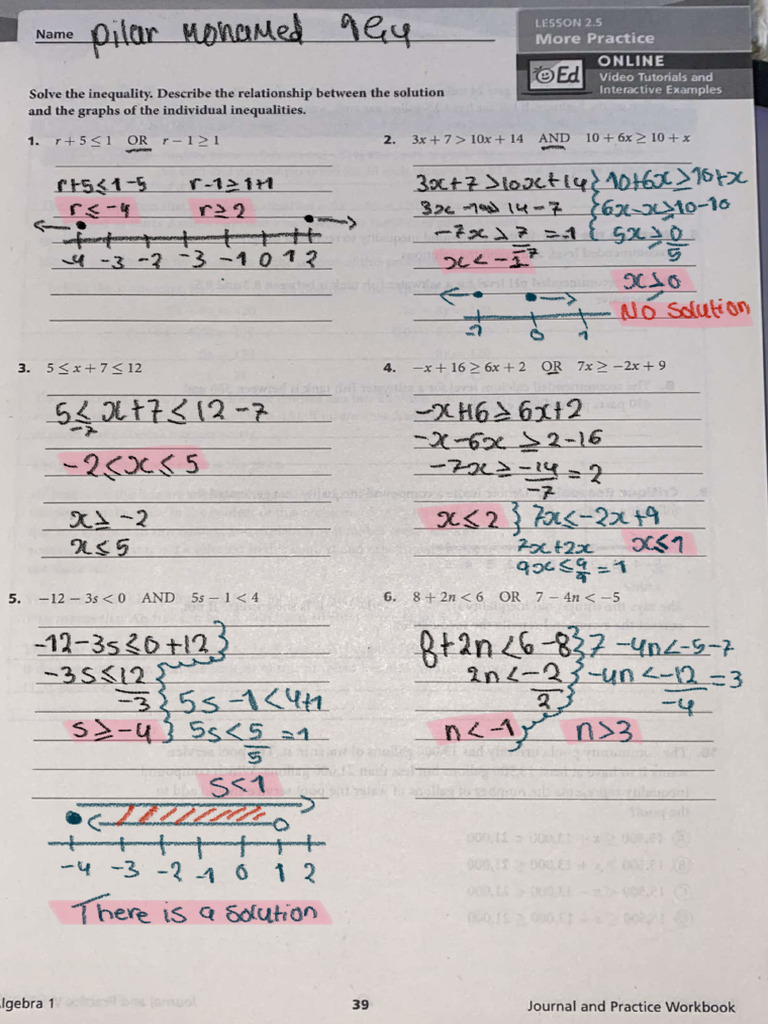 Name pilar Mohamed 9th
LESSON 2.5
More Practice
ONLINE
Ed
Video Tutorials and
Interactive Examples
Solve the inequality. Describe the relationship between the solution
and the graphs of the individual inequalities.
1. r + 5 ≤ 1 OR r − 1 ≥ 1
r+5≤1-5 r-1≥1+1
r≤-4 r≥2
-4 -3 -2 -3 -1 0 1 2
2. 3x + 7 > 10x + 14 AND 10 + 6x ≥ 10 + x
3x+7>10x+14} 10+6x≥10+x
14-7 {6x-x≥10-10
-7x > 7 = -1 { 5x≥0
-7 5
x<-1
x≥0
No Solution
-1 0 1
3. 5 ≤ x + 7 ≤ 12
5≤x+7≤12-7
-7
-2≤x≤5
x≥-2
x≤5
4. −x + 16 ≥ 6x + 2 OR 7x ≥ −2x + 9
-x+16≥6x+2
-x-6x ≥ 2-16
-7x≥-14 = 2
-7
x≤2 } 7x≤-2x+9
7x+2x x≤1
9x≤9 = 1
9
5. −12 − 3s < 0 AND 5s − 1 < 4
-12-3s≤0+12}
-3s≤12
-3 } 5s-1<4+1
s≥-4 } 5s<5 =1
5
s<1
-4 -3 -2 -1 0 1 2
There is a solution
6. 8 + 2n < 6 OR 7 − 4n < −5
8+2n<6-8} 7-4n<-5-7
2n<-2 -4n<-12 = 3
2 -4
n<-1 n>3
lgebra 1
39
Journal and Practice Workbook